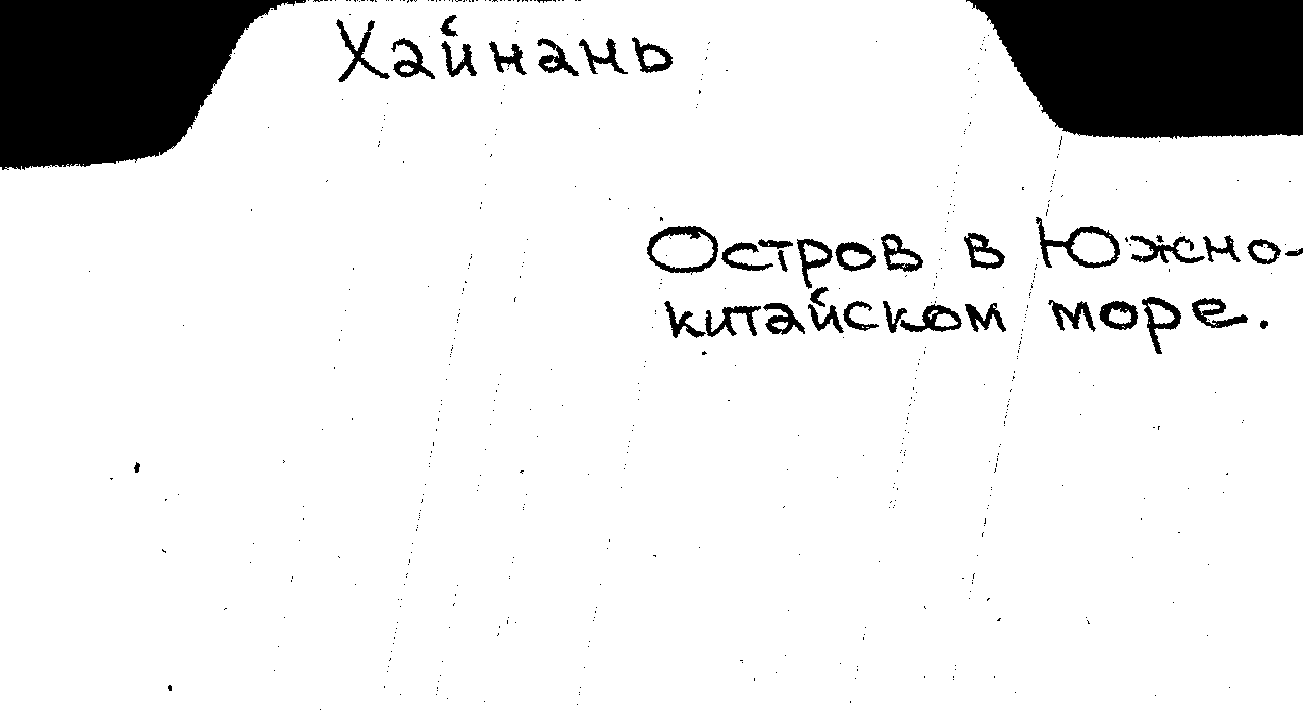 Хайнань
Остров в Южно-
китайском море.